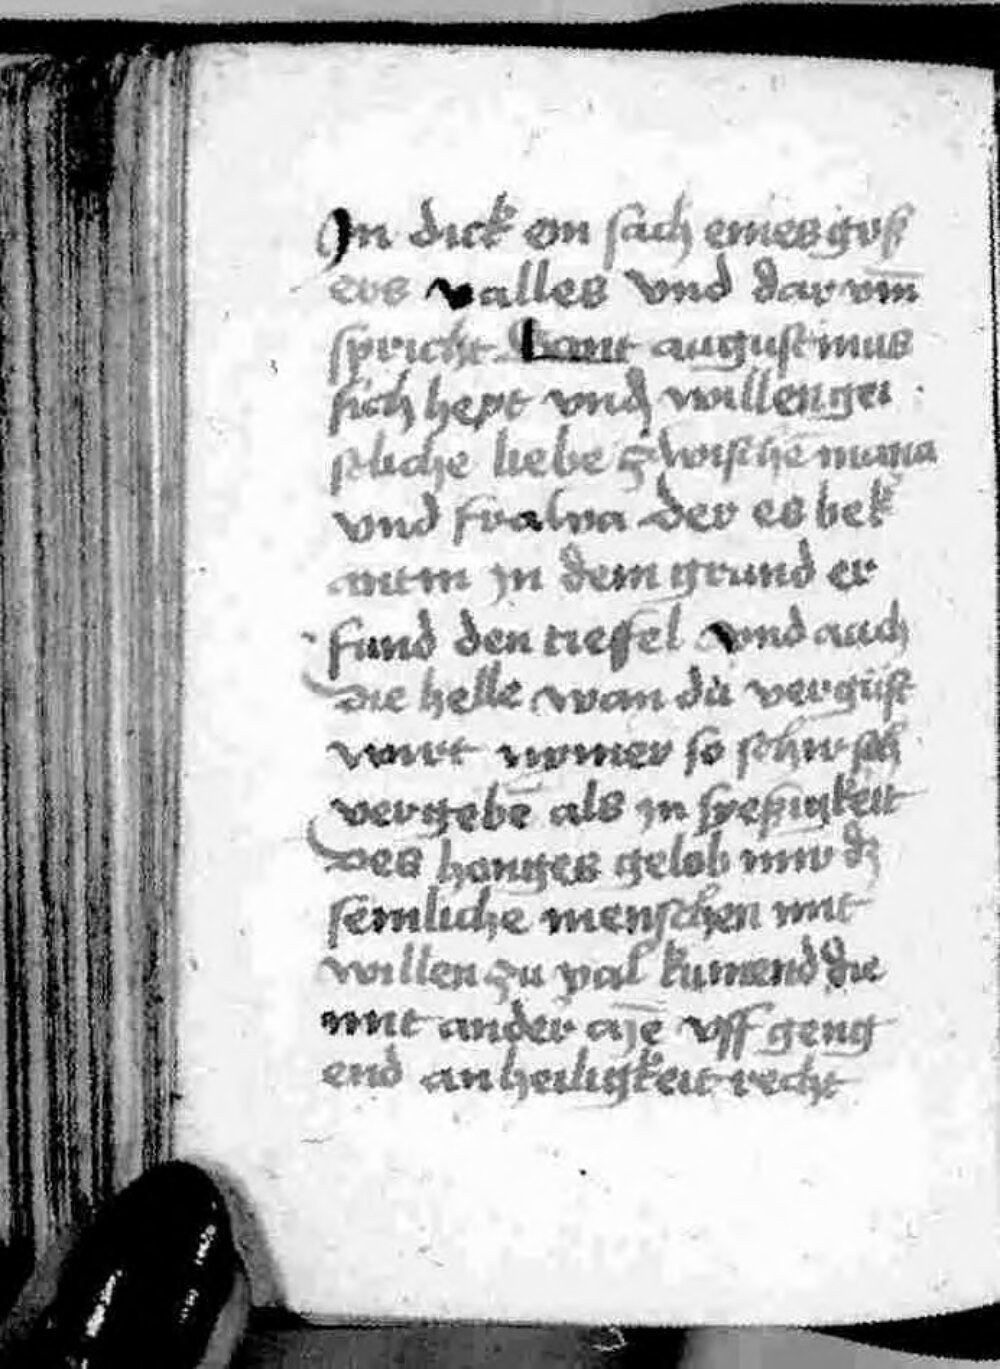 In dick ein sach eines gros
ers valles vnd dar vm̄
spricht Sant augustinus
sich hept vnd willen gei
stliche liebe zwischē
vnd der es bek
antin in dem grund er
fund den tieffel vnd auch
die helle wan du vergist
wirt nymer so
vergebē als in
des honiges gelob mir dz
semliche menschen mit
willen zu val kumend die
mit ander e uff geng
end an heiligkeit recht